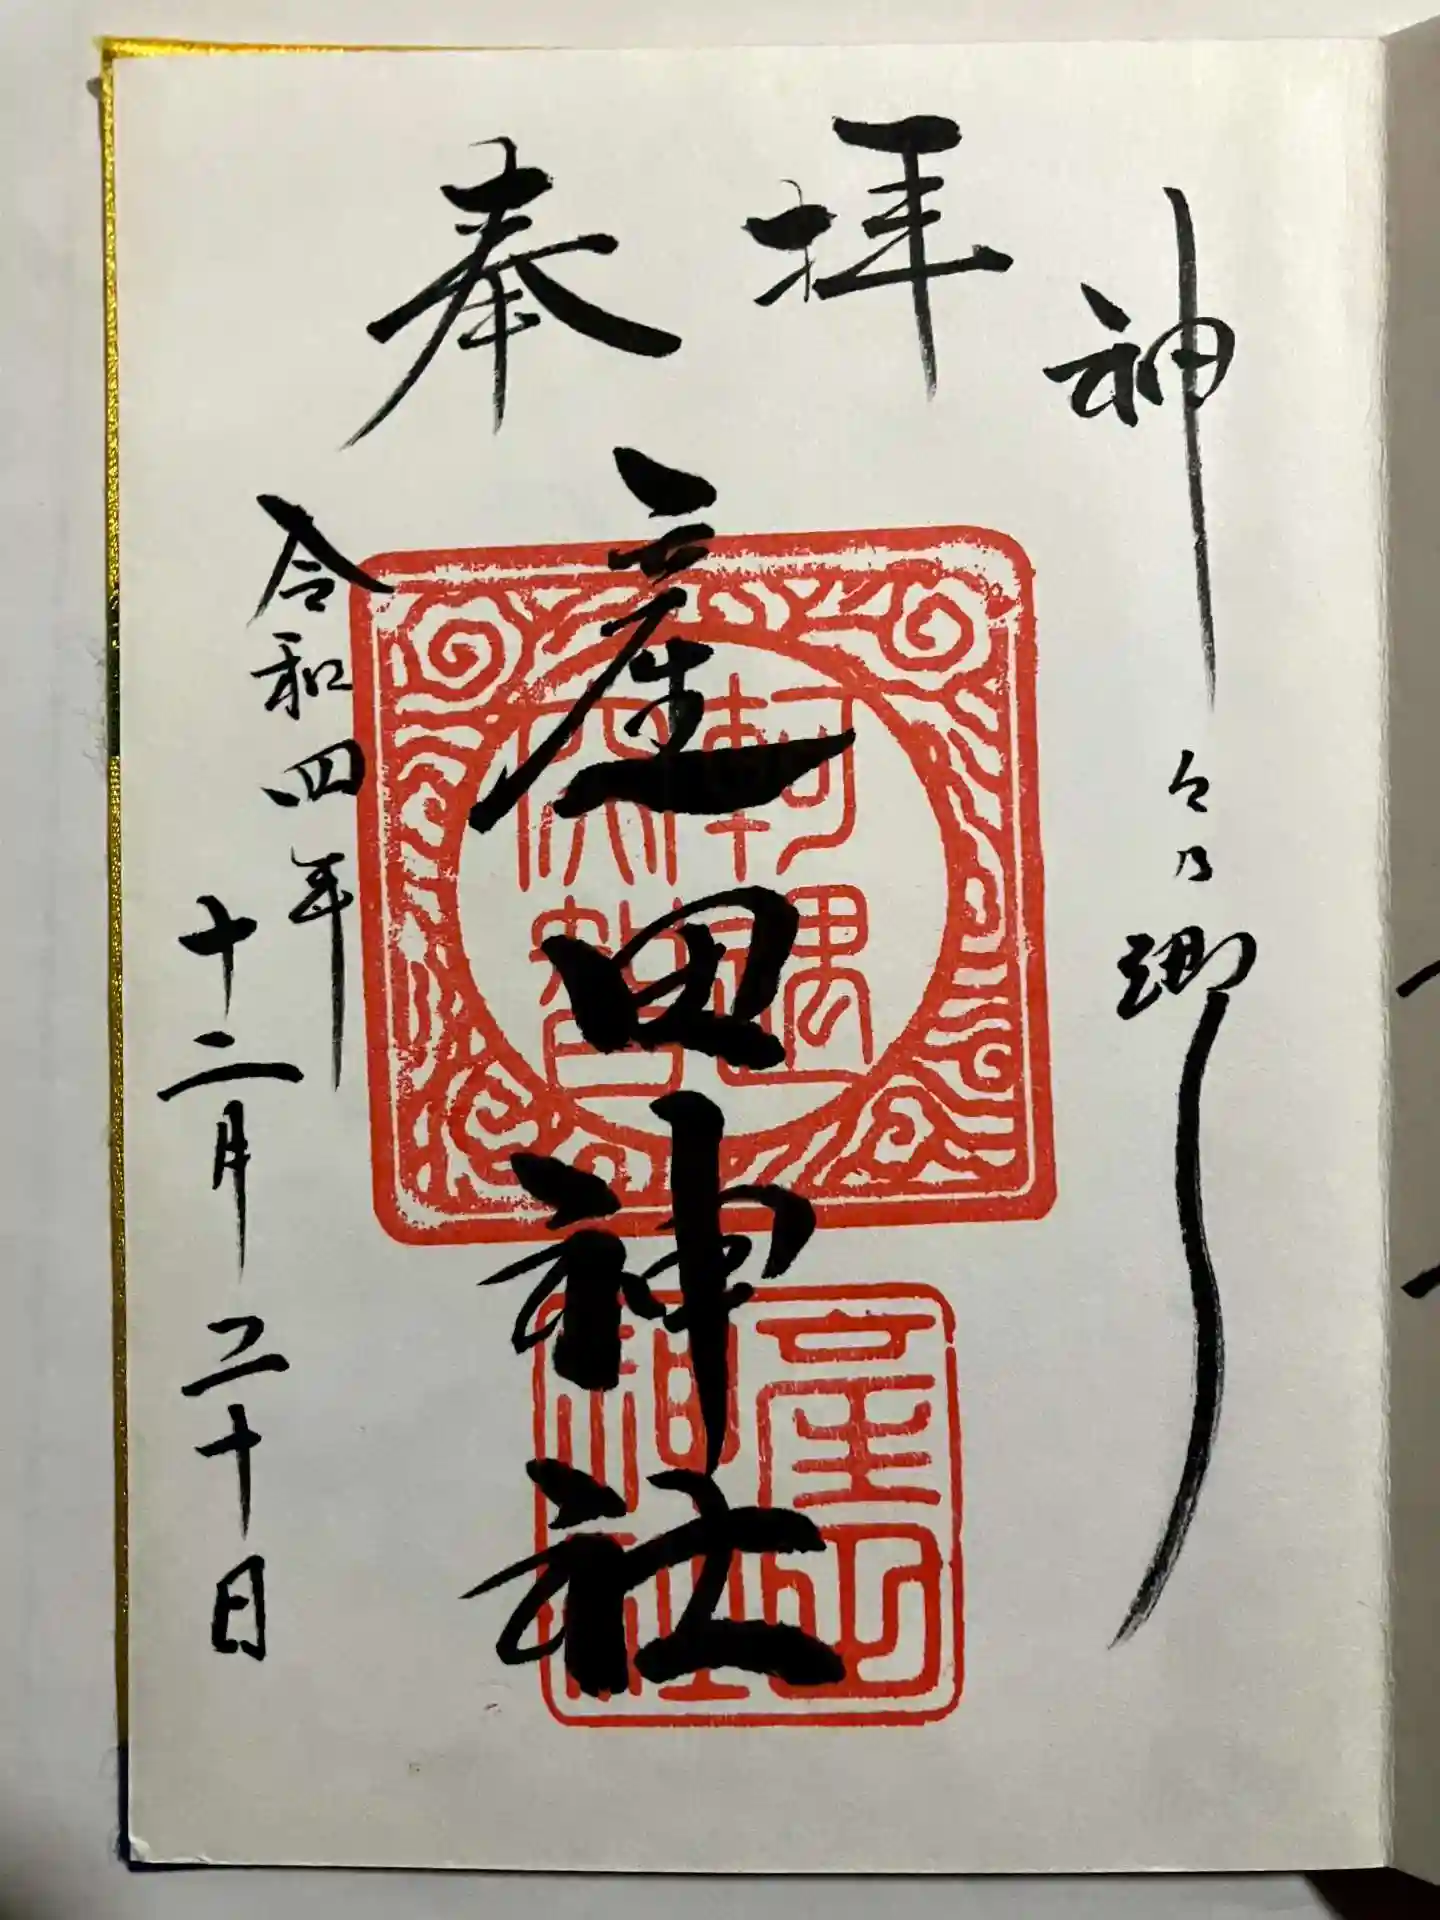 神々乃郷
奉拝
産田神社
軻遇
突智
産田
神社
令和四年
十二月二十日